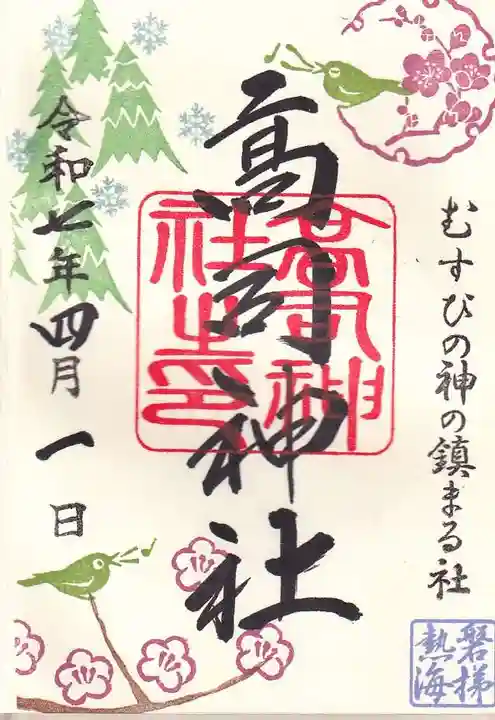 むすびの神の鎮まる社
高司神社
高司神社之印
令和七年四月一日
磐梯
熱海